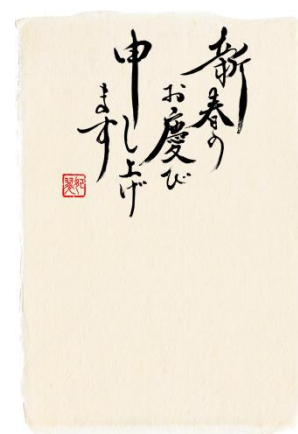 新春の
お慶び
申し上げ
ます